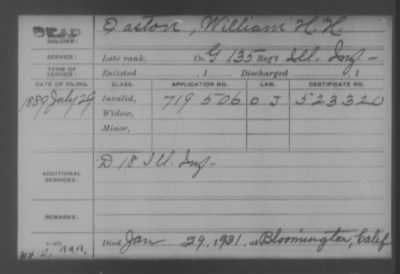 DEAD Easton, William H. H.
SOLDIER:
SERVICE: Late rank, Co. G 135 Reg't Ill. Inf-
TERM OF SERVICE: Enlisted , 1 Discharged , 1
DATE OF FILING. CLASS. APPLICATION NO. LAW. CERTIFICATE NO.
1889 July 29 Invalid, 719 506 O J 523320
Widow,
Minor,
ADDITIONAL SERVICES: D 18 Ill. Inf-
REMARKS:
Died Jan 29, 1931, at Bloomington, Calif